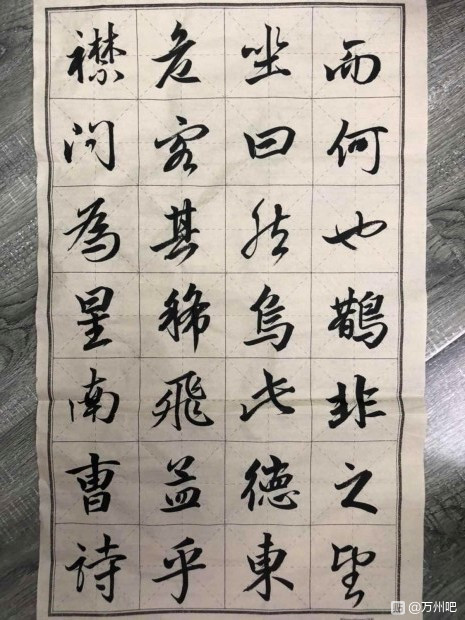 襟危坐而
问客曰何
為其然也
星稀烏鵲
南飛此非
曹孟德之
詩乎東望
@万州吧